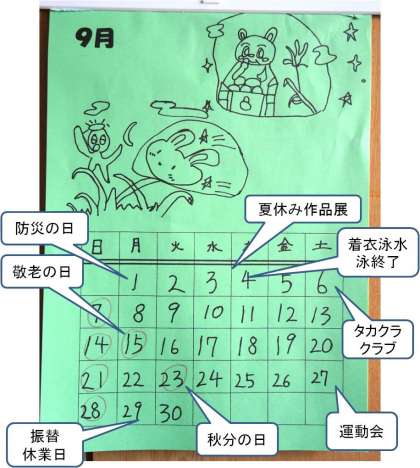 9月
夏休み作品展
防災の日
着衣泳水
泳終了
敬老の日
日 月 火 水 木 金 土
1 2 3 4 5 6
7 8 9 10 11 12 13
14 15 16 17 18 19 20
21 22 23 24 25 26 27
28 29 30
タカクラ
クラブ
運動会
秋分の日
振替
休業日